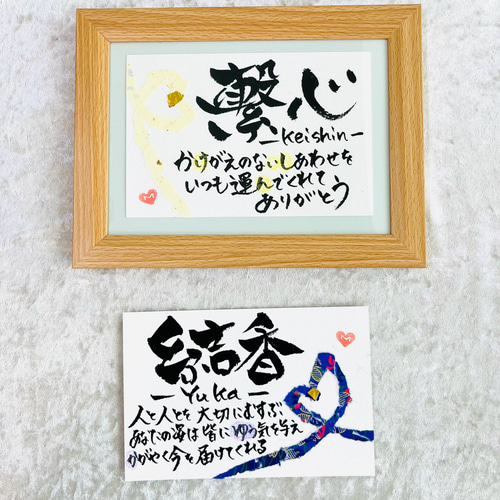 繋心
-Keishin-
かけがえのないしあわせを
いつも運んでくれて
ありがとう
結香
-Yuka-
人と人とを大切にむすぶ
あなたの姿は皆にゆう気を与え
かがやく今を届けてくれる